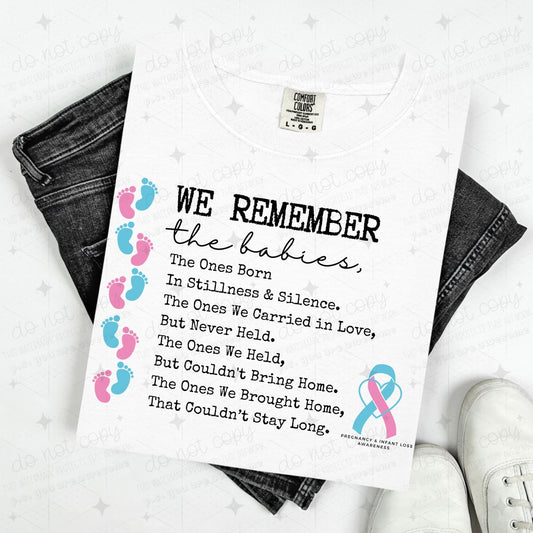 do not copy
COMFORT
COLORS
L - G - G
WE REMEMBER
the babies,
The Ones Born
In Stillness & Silence.
The Ones We Carried in Love,
But Never Held.
The Ones We Held,
But Couldn't Bring Home.
The Ones We Brought Home,
That Couldn't Stay Long.
PREGNANCY & INFANT LOSS
AWARENESS